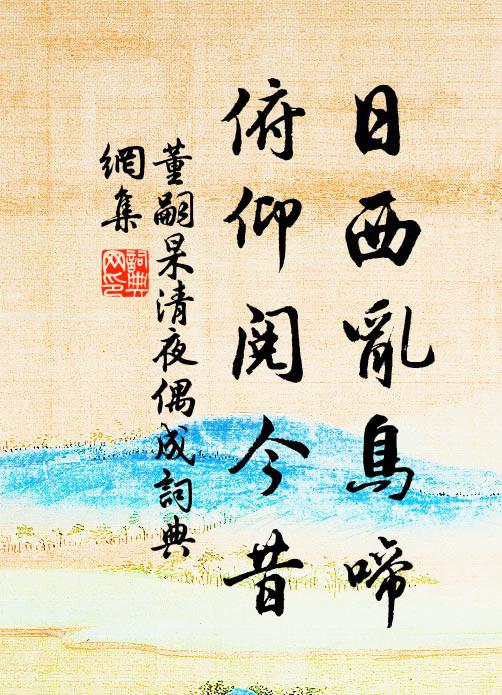 日西亂鳥啼
俯仰閱今昔
董嗣杲清夜偶成詞典
網集
詞典
网印